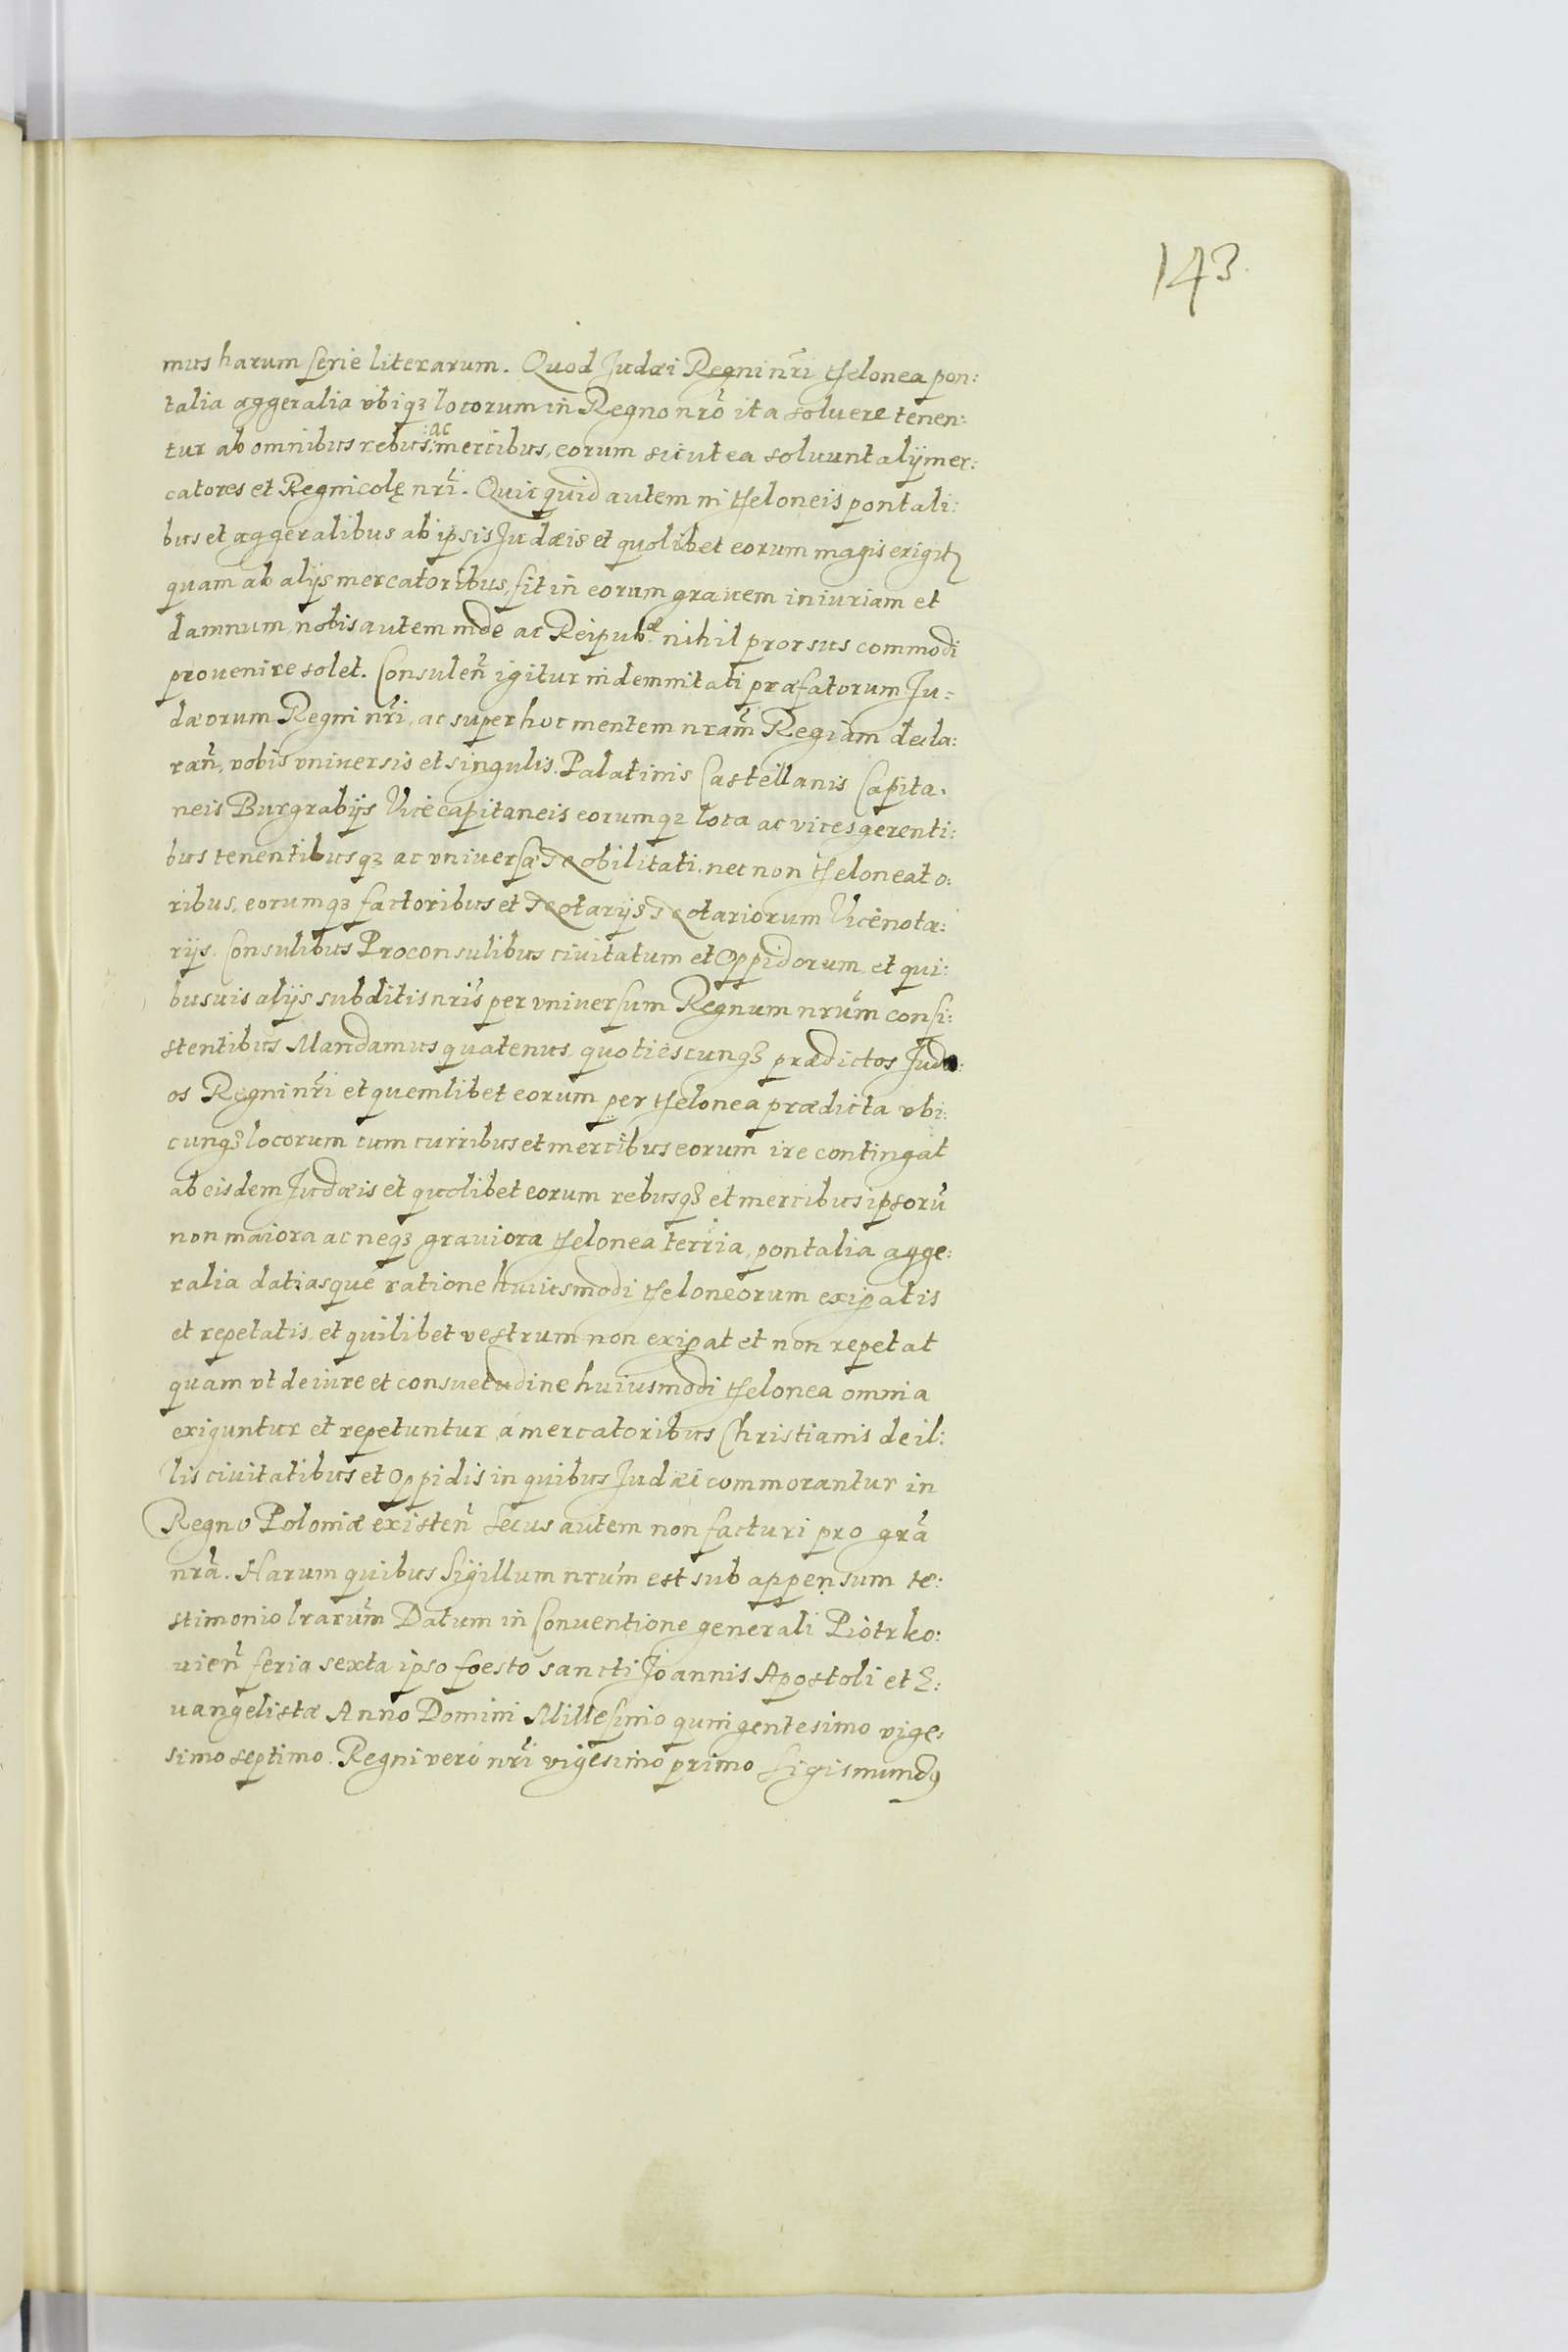 143.
mus harum serie literarum. Quod Judæi Regni nr̃i theloneа pon:
talia aggeralia vbiqȝ locorum in Regno nr̃o ita soluere tenen:
tur ab omnibus rebus :ac mercibus, eorum sicut ea soluunt alij mer:
catores et Regnicolę nr̃i. Quicquid autem in theloneis pontali:
bus et aggeralibus ab ipsis Judæis et quolibet eorum magis exigitꝛ
quam ab alijs mercatoribus, fit in eorum grauem iniuriam et
damnum, nobis autem inde ac Reipubæ nihil prorsus commodi
prouenire solet. Consuleñ igitur indemnitati præfatorum Ju:
dæorum Regni nr̃i, ac super hoc mentem nram̃ Regiam decla:
rañ, vobis vniuersis et singulis. Palatinis Castellanis Capita:
neis Burgrabijs Vicecapitaneis eorumqȝ loca ac vicesgerenti:
bus tenentibusqȝ ac vniuersæ Nobilitati. nec non theloneato:
ribus, eorumqȝ factoribus et Notarijs Notariorum Vicenota:
rijs. Consulibus Proconsulibus ciuitatum et Oppidorum, et qui:
busuis alijs subditis nr̃is per vniuersum Regnum nrum̃ consi:
stentibus Mandamus quatenus, quotiescunqȝ prædictos Judæ:
os Regni nr̃i et quemlibet eorum per thelonea prædicta vbi:
cunqȝ locorum cum curribus et mercibus eorum ire contingat
ab eisdem Judæis et quolibet eorum rebusqȝ et mercibus ipsorũ
non maiora ac neqȝ grauiora thelonea terr̃ia, pontalia agge:
ralia datiasque ratione huiusmodi theloneorum exigatis
et repetatis, et quilibet vestrum non exigat et non repetat
quam vt de iure et consuetudine huiusmodi thelonea omnia
exiguntur et repetuntur à mercatoribus Christianis de il:
lis ciuitatibus et Oppidis in quibus Judæi commorantur in
Regno Poloniæ existeñ secus autem non facturi pro gr̃a
nr̃a. Harum quibus Sigillum nrum̃ est sub appensum te:
stimonio lrarum̃ Datum in Conuentione generali Piotrko:
uieñ feria sexta ipso foesto sancti Joannis Apostoli et E:
uangelistæ Anno Domini Millesimo quingentesimo vige:
simo septimo. Regni verò nr̃i vigesimo primo Sigismundꝰ